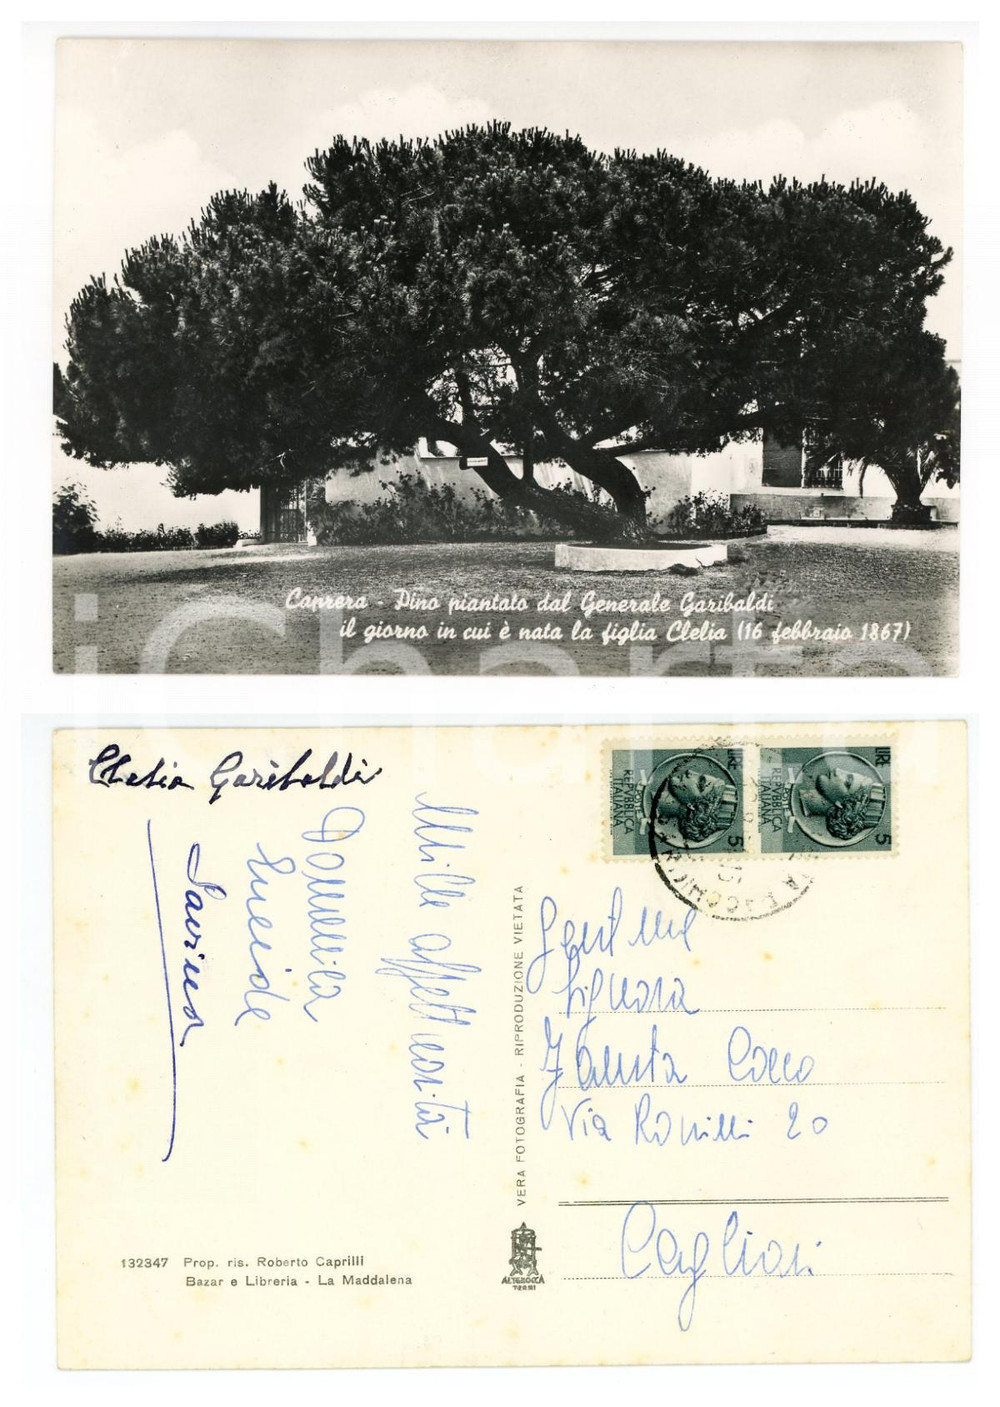 Caprera - Pino piantato dal Generale Garibaldi
il giorno in cui è nata la figlia Clelia (16 febbraio 1867)
iCharta
Clelia Garibaldi
Mille affettuosità
Domenica
Lucide
Savina
VERA FOTOGRAFIA - RIPRODUZIONE VIETATA
LIRE 5
POSTE
REPVBBLICA
ITALIANA
LIRE 5
POSTE
REPVBBLICA
ITALIANA
Gent.ma
Signora
Fausta Cocco
Via 20
Cagliari
132347 Prop. ris. Roberto Caprilli
Bazar e Libreria - La Maddalena
ALTEROCCA
TERNI